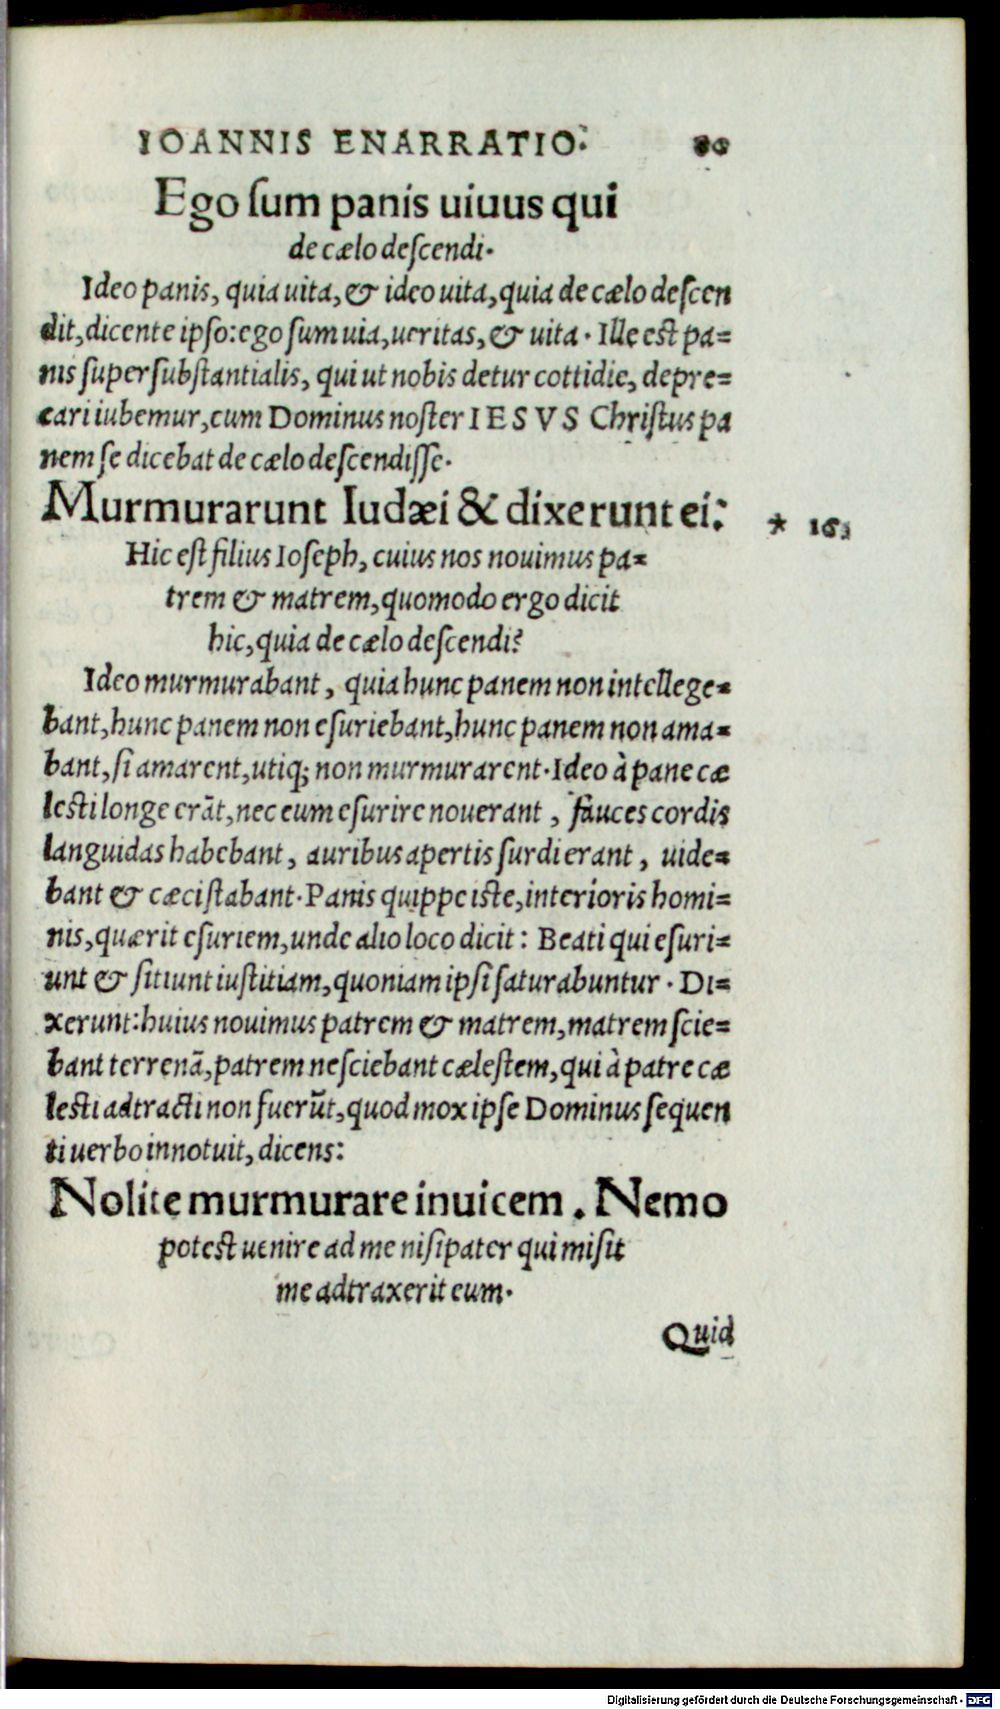 IOANNIS ENARRATIO.
Ego ſum panis uiuus qui
de cælo deſcendi.
Ideo panis, quia uita, & ideo uita, quia de cælo deſcen
dit, dicente ipſo: ego ſum uia, ueritas, & uita. Ille eſt pa=
nis ſuperſubſtantialis, qui ut nobis detur cottidie, depre=
cari iubemur, cum Dominus noſter IESVS Chriſtus pa
nem ſe dicebat de cælo deſcendiſſe.
Murmurarunt Iudæi & dixerunt ei:
* 16.
Hic eſt filius Ioſeph, cuius nos nouimus pa=
trem & matrem, quomodo ergo dicit
hic, quia de cælo deſcendi?
Ideo murmurabant, quia hunc panem non intellege=
bant, hunc panem non eſuriebant, hunc panem non ama=
bant, ſi amarent, utiq; non murmurarent. Ideo à pane cæ
leſti longe erāt, nec eum eſurire nouerant, fauces cordis
languidas habebant, auribus apertis ſurdi erant, uide=
bant & cæci ſtabant. Panis quippe iſte, interioris homi=
nis, quærit eſuriem, unde alio loco dicit: Beati qui eſuri=
unt & ſitiunt iuſtitiam, quoniam ipſi ſaturabuntur. Di=
xerunt: huius nouimus patrem & matrem, matrem ſcie=
bant terrenā, patrem neſciebant cæleſtem, qui à patre cæ
leſti adtracti non fuerūt, quod mox ipſe Dominus ſequen
ti uerbo innotuit, dicens:
Nolite murmurare inuicem. Nemo
poteſt uenire ad me niſi pater qui miſit
me adtraxerit eum.
Quid
Digitalisierung gefördert durch die Deutsche Forschungsgemeinschaft - DFG